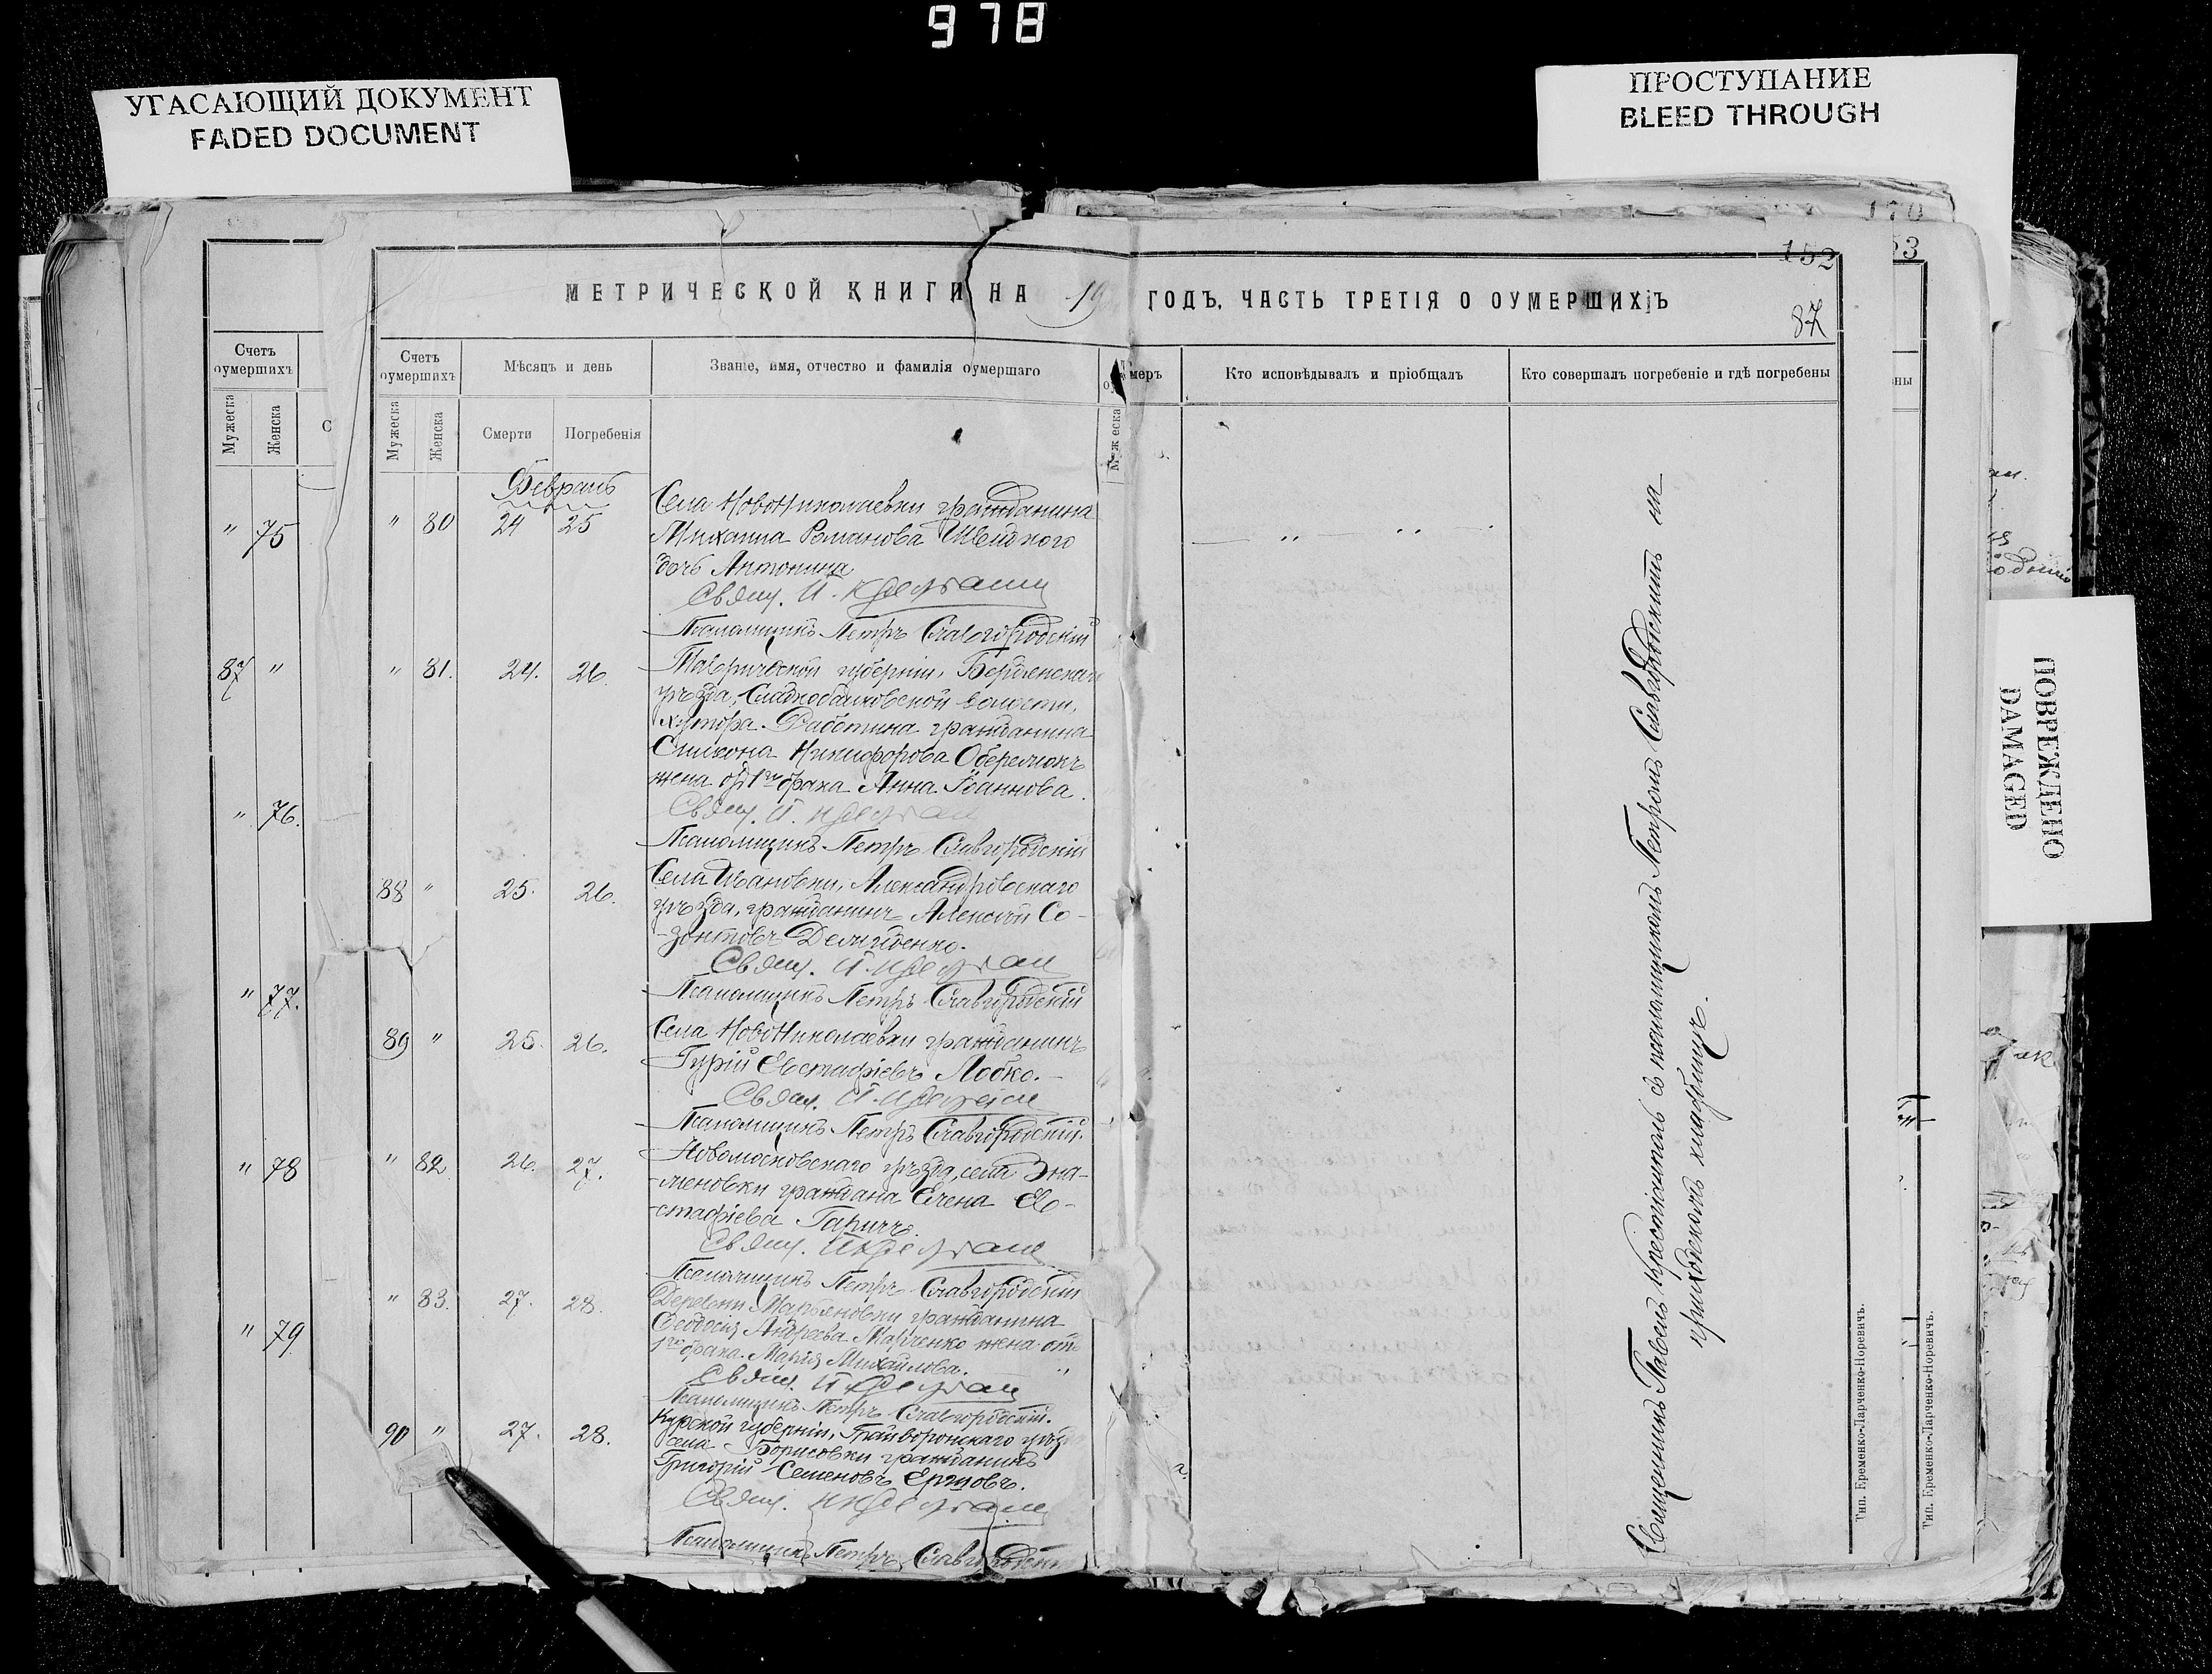 978
УГАСАЮЩИЙ ДОКУМЕНТ
FADED DOCUMENT
ПРОСТУПАНИЕ
BLEED THROUGH
ПОВРЕЖДЕНО
DAMAGED
170
53
152
87
МЕТРИЧЕСКОЙ КНИГИ НА 19 ГОДЪ, ЧАСТЬ ТРЕТІЯ О ОУМЕРШИХЪ
Счетъ оумершихъ
Мужеска
Женска
" 75
87 "
" 76.
" 77.
" 78
" 79
Счетъ оумершихъ
Мѣсяцъ и день
Званіе, имя, отчество и фамилія оумершаго
меръ
Кто исповѣдывалъ и пріобщалъ
Кто совершалъ погребеніе и гдѣ погребены
ны
Мужеска
Женска
Смерти
Погребенія
Мужеска
Февраль
" 80 24 25
Села НовоНиколаевки гражданина
Михаила Романова
дочь Антонина
Свящ.
Псаломщикъ Петръ Славгородскій
" 81. 24. 26.
Таврической губерніи, Бердянскаго
уѣзда, Сладкобалковской волости,
хутора Работина гражданина
Симеона Никифорова
жена отъ 1го брака Анна Іоаннова.
Свящ.
Псаломщикъ Петръ Славгородскій
88 " 25. 26.
Села Ивановки, Александровскаго
уѣзда, гражданинъ Алексѣй Со-
-зонтовъ
Свящ.
Псаломщикъ Петръ Славгородскій
89 " 25. 26.
Села НовоНиколаевки гражданинъ
Гурій Евстафіевъ Лобко.
Свящ.
Псаломщикъ Петръ Славгородскій.
" 82 26. 27.
Новомосковскаго уѣзда, села Зна-
-меновки граждана Елена Ев-
-стафіева
Свящ.
Псаломщикъ Петръ Славгородскій
" 83. 27. 28.
Деревни Марьяновки гражданина
Ѳеодосія Андреева Марченко жена отъ
1го брака Марія Михаилова.
Свящ.
Псаломщикъ Петръ Славгородскій.
90 " 27. 28.
Курской губерніи, Грайворонскаго уѣзда
села Борисовки гражданинъ
Григорій Семеновъ
Свящ.
Псаломщикъ Петръ Славгородскій
Священникъ Павелъ съ псаломщикомъ Петромъ Славгородскимъ на
приходскомъ кладбищѣ.
Тип. Еременко-Ларченко-Норевичъ.
Тип. Еременко-Ларченко-Норевичъ.